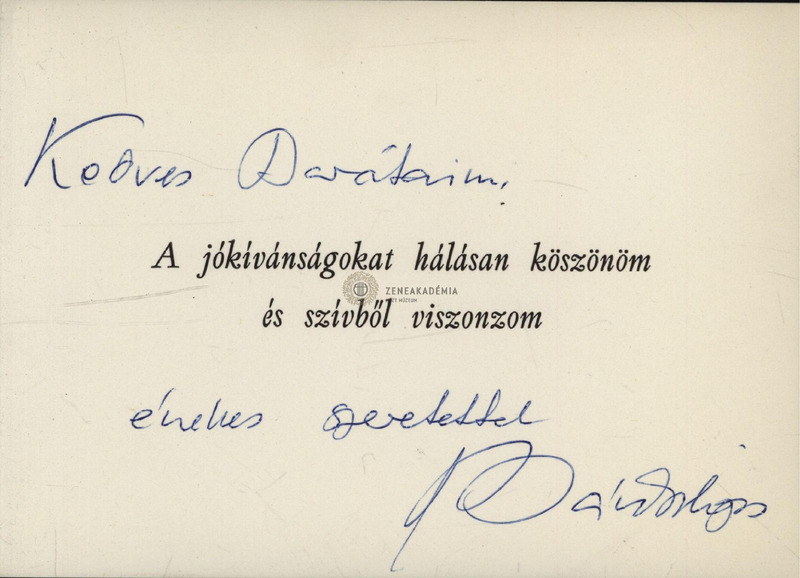 Kedves Barátaim!
A jókívánságokat hálásan köszönöm
ZENEAKADÉMIA
LISZT MÚZEUM
és szívből viszonzom
énekes szeretettel
Bárdos Lajos